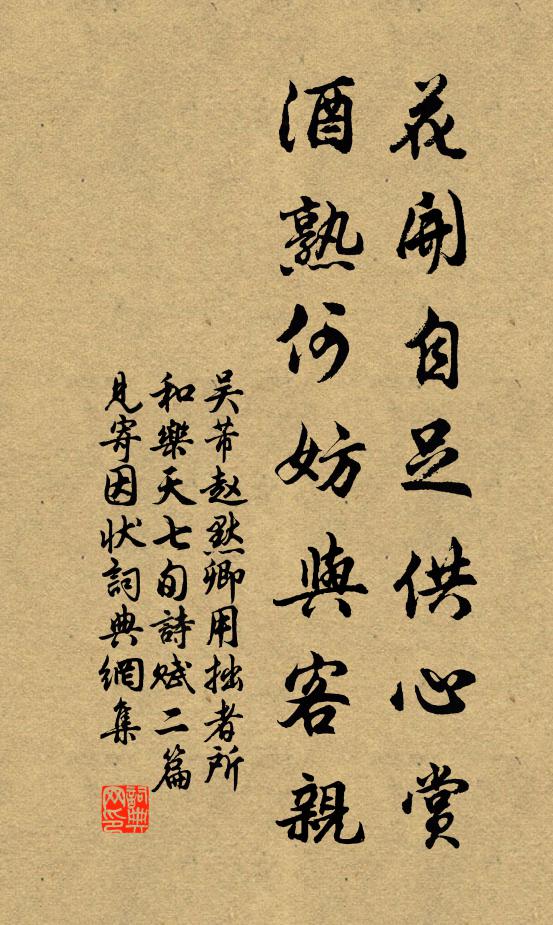 花開自足供心賞
酒熟何妨與客親
吴芾趙默卿用拙者所
和樂天七旬詩賦二篇
見寄因状詞典網集
詞典网印